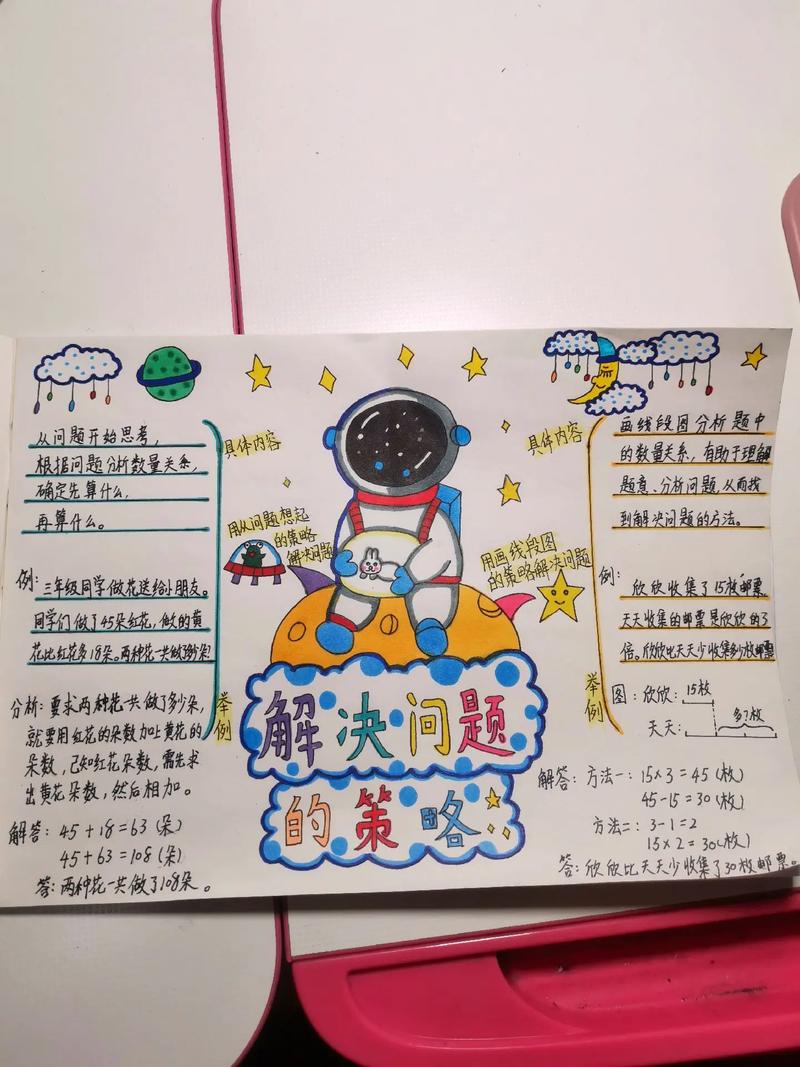 从问题开始思考，
根据问题分析数量关系，
确定先算什么，
再算什么。
具体内容
例：三年级同学做花送给小朋友。
同学们做了45朵红花，做的黄
花比红花多18朵。两种花一共做了多少朵？
举例
分析：要求两种花一共做了多少朵，
就要用红花的朵数加上黄花的
朵数，已知红花朵数，需先求
出黄花朵数，然后相加。
解答：45+18=63（朵）
45+63=108（朵）
答：两种花一共做了108朵。
用从问题想起
的策略
解决问题
用画线段图
的策略解决问题
解决问题
的策略
具体内容
画线段图分析题中
的数量关系，有助于理解
题意、分析问题，从而找
到解决问题的方法。
例：
欣欣收集了15枚邮票，
天天收集的邮票是欣欣的3
倍。欣欣比天天少收集多少枚邮票
举例
图：欣欣：15枚
天天：多?枚
解答：方法一：15×3=45（枚）
45-15=30（枚）
方法二：3-1=2
15×2=30（枚）
答：欣欣比天天少收集了30枚邮票。